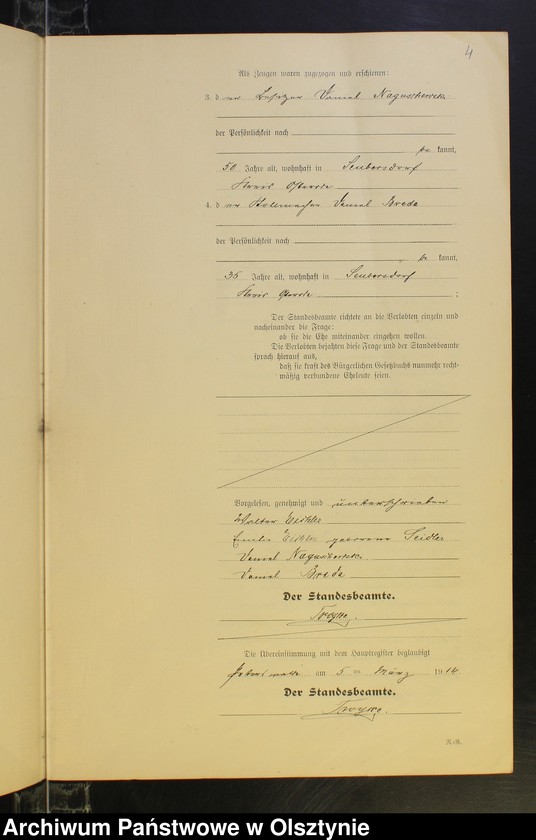 4
Als Zeugen waren zugezogen und erschienen:
3. der Besitzer Samuel
der Persönlichkeit nach
be kannt,
50 Jahre alt, wohnhaft in Seubersdorf
Kreis Osterode
4. der Samuel Breda
der Persönlichkeit nach
be kannt,
36 Jahre alt, wohnhaft in Seubersdorf
Kreis Osterode ;
Der Standesbeamte richtete an die Verlobten einzeln und
nacheinander die Frage:
ob sie die Ehe miteinander eingehen wollen.
Die Verlobten bejahten diese Frage und der Standesbeamte
sprach hierauf aus,
daß sie kraft des Bürgerlichen Gesetzbuchs nunmehr recht-
mäßig verbundene Eheleute seien.
Vorgelesen, genehmigt und unterschrieben
Walter
geborene Seidler
Samuel
Samuel Breda
Der Standesbeamte.
Die Übereinstimmung mit dem Hauptregister beglaubigt
am 5 ten März 1914
Der Standesbeamte.
Archiwum Państwowe w Olsztynie